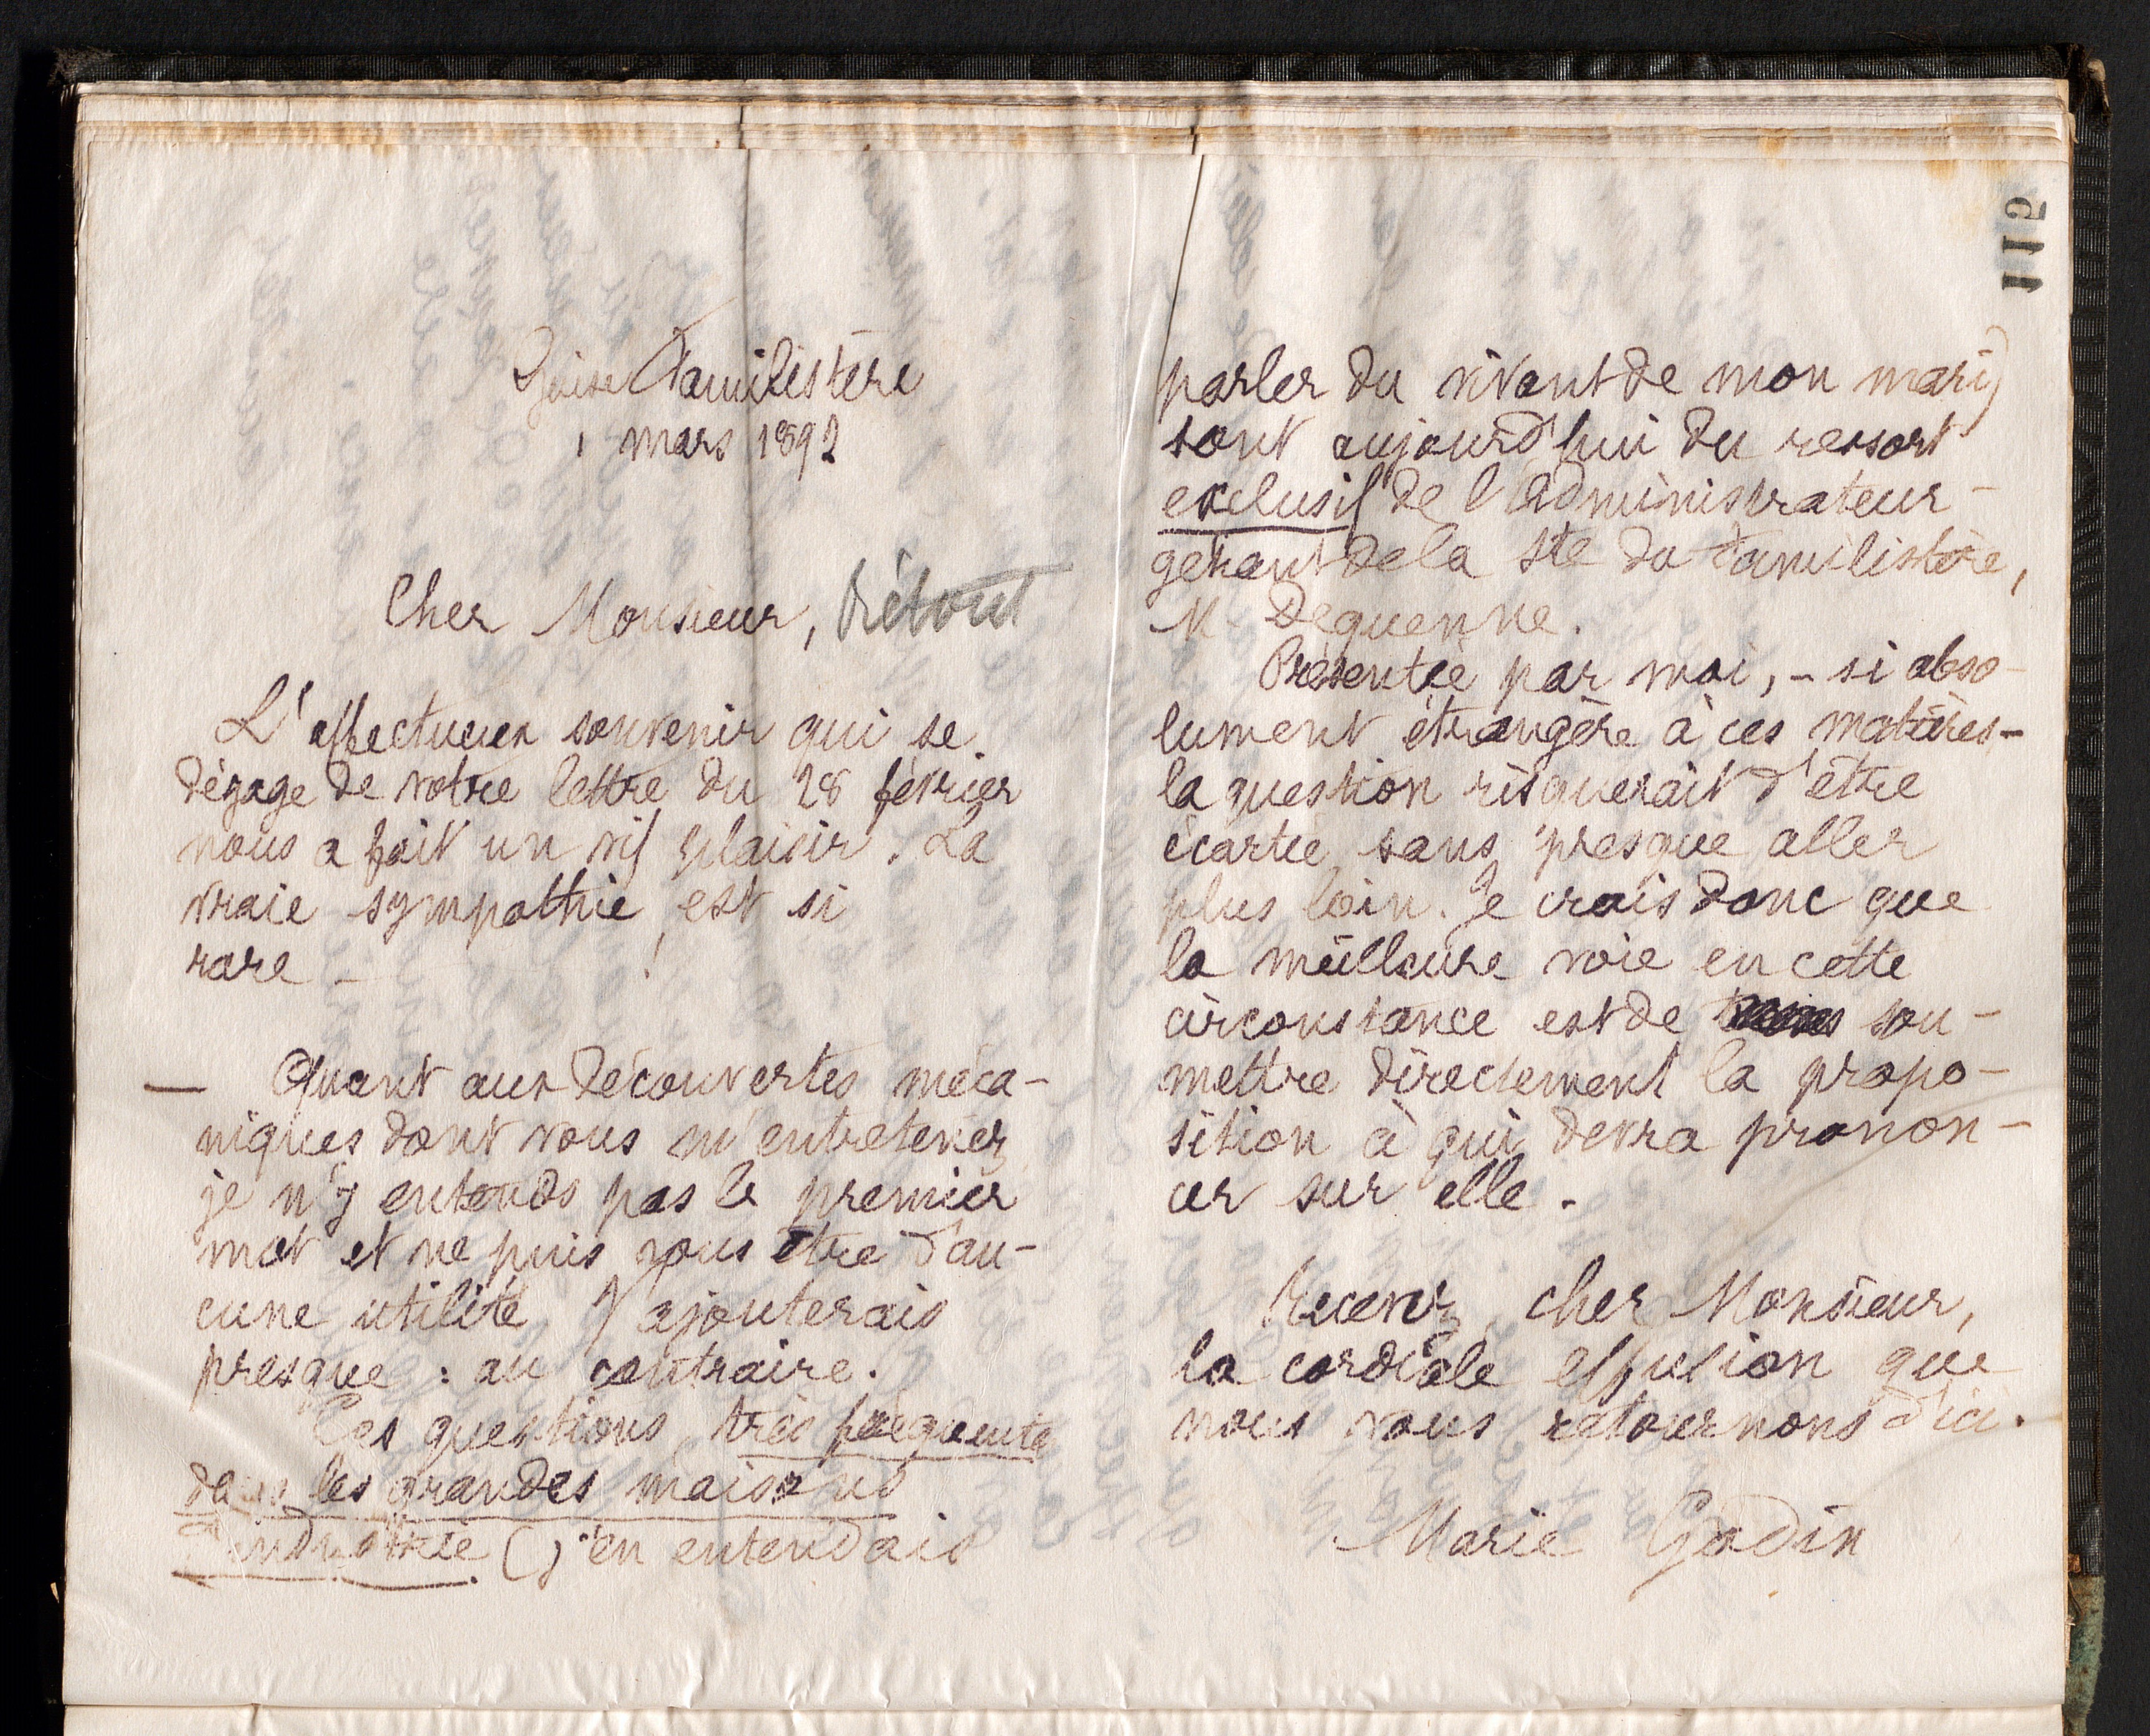 Guise Familistère
1 mars 1892
Cher Monsieur, Prétout
L'affectueux souvenir qui se
dégage de votre lettre du 28 février
nous a fait un vif plaisir. La
vraie sympathie est si
rare - !
— Quant aux découvertes méca-
niques dont vous m'entretenez
je n'y entends pas le premier
mot et ne puis vous être d'au-
cune utilité J'ajouterais
presque : au contraire.
Ces questions, très fréquentes
dans les grandes maisons
d'industrie (j'en entendais
115
parler du vivant de mon mari)
sont aujourd'hui du ressort
exclusif de l'administrateur-
gérant de la Sté du Familistère,
M. Dequenne.
Présentée par moi, - si abso-
lument étrangère à ces matières -
la question risquerait d'être
écartée sans presque aller
plus loin. Je crois donc que
la meilleure voie en cette
circonstance est de sou-
mettre directement la propo-
sition à qui devra pronon-
cer sur elle.
Recevez, cher Monsieur,
la cordiale effusion que
nous vous retournons d'ici.
Marie Godin